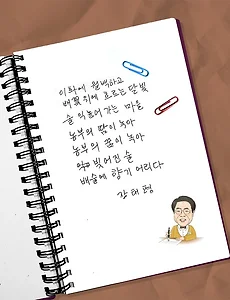 이화에 월백하고
배꽃위에 흐르는 달빛
술 익어 가는 마을
농부의 땀이 녹아
농부의 꿈이 녹아
빚어진 술
배술에 향기 어리다
강태형